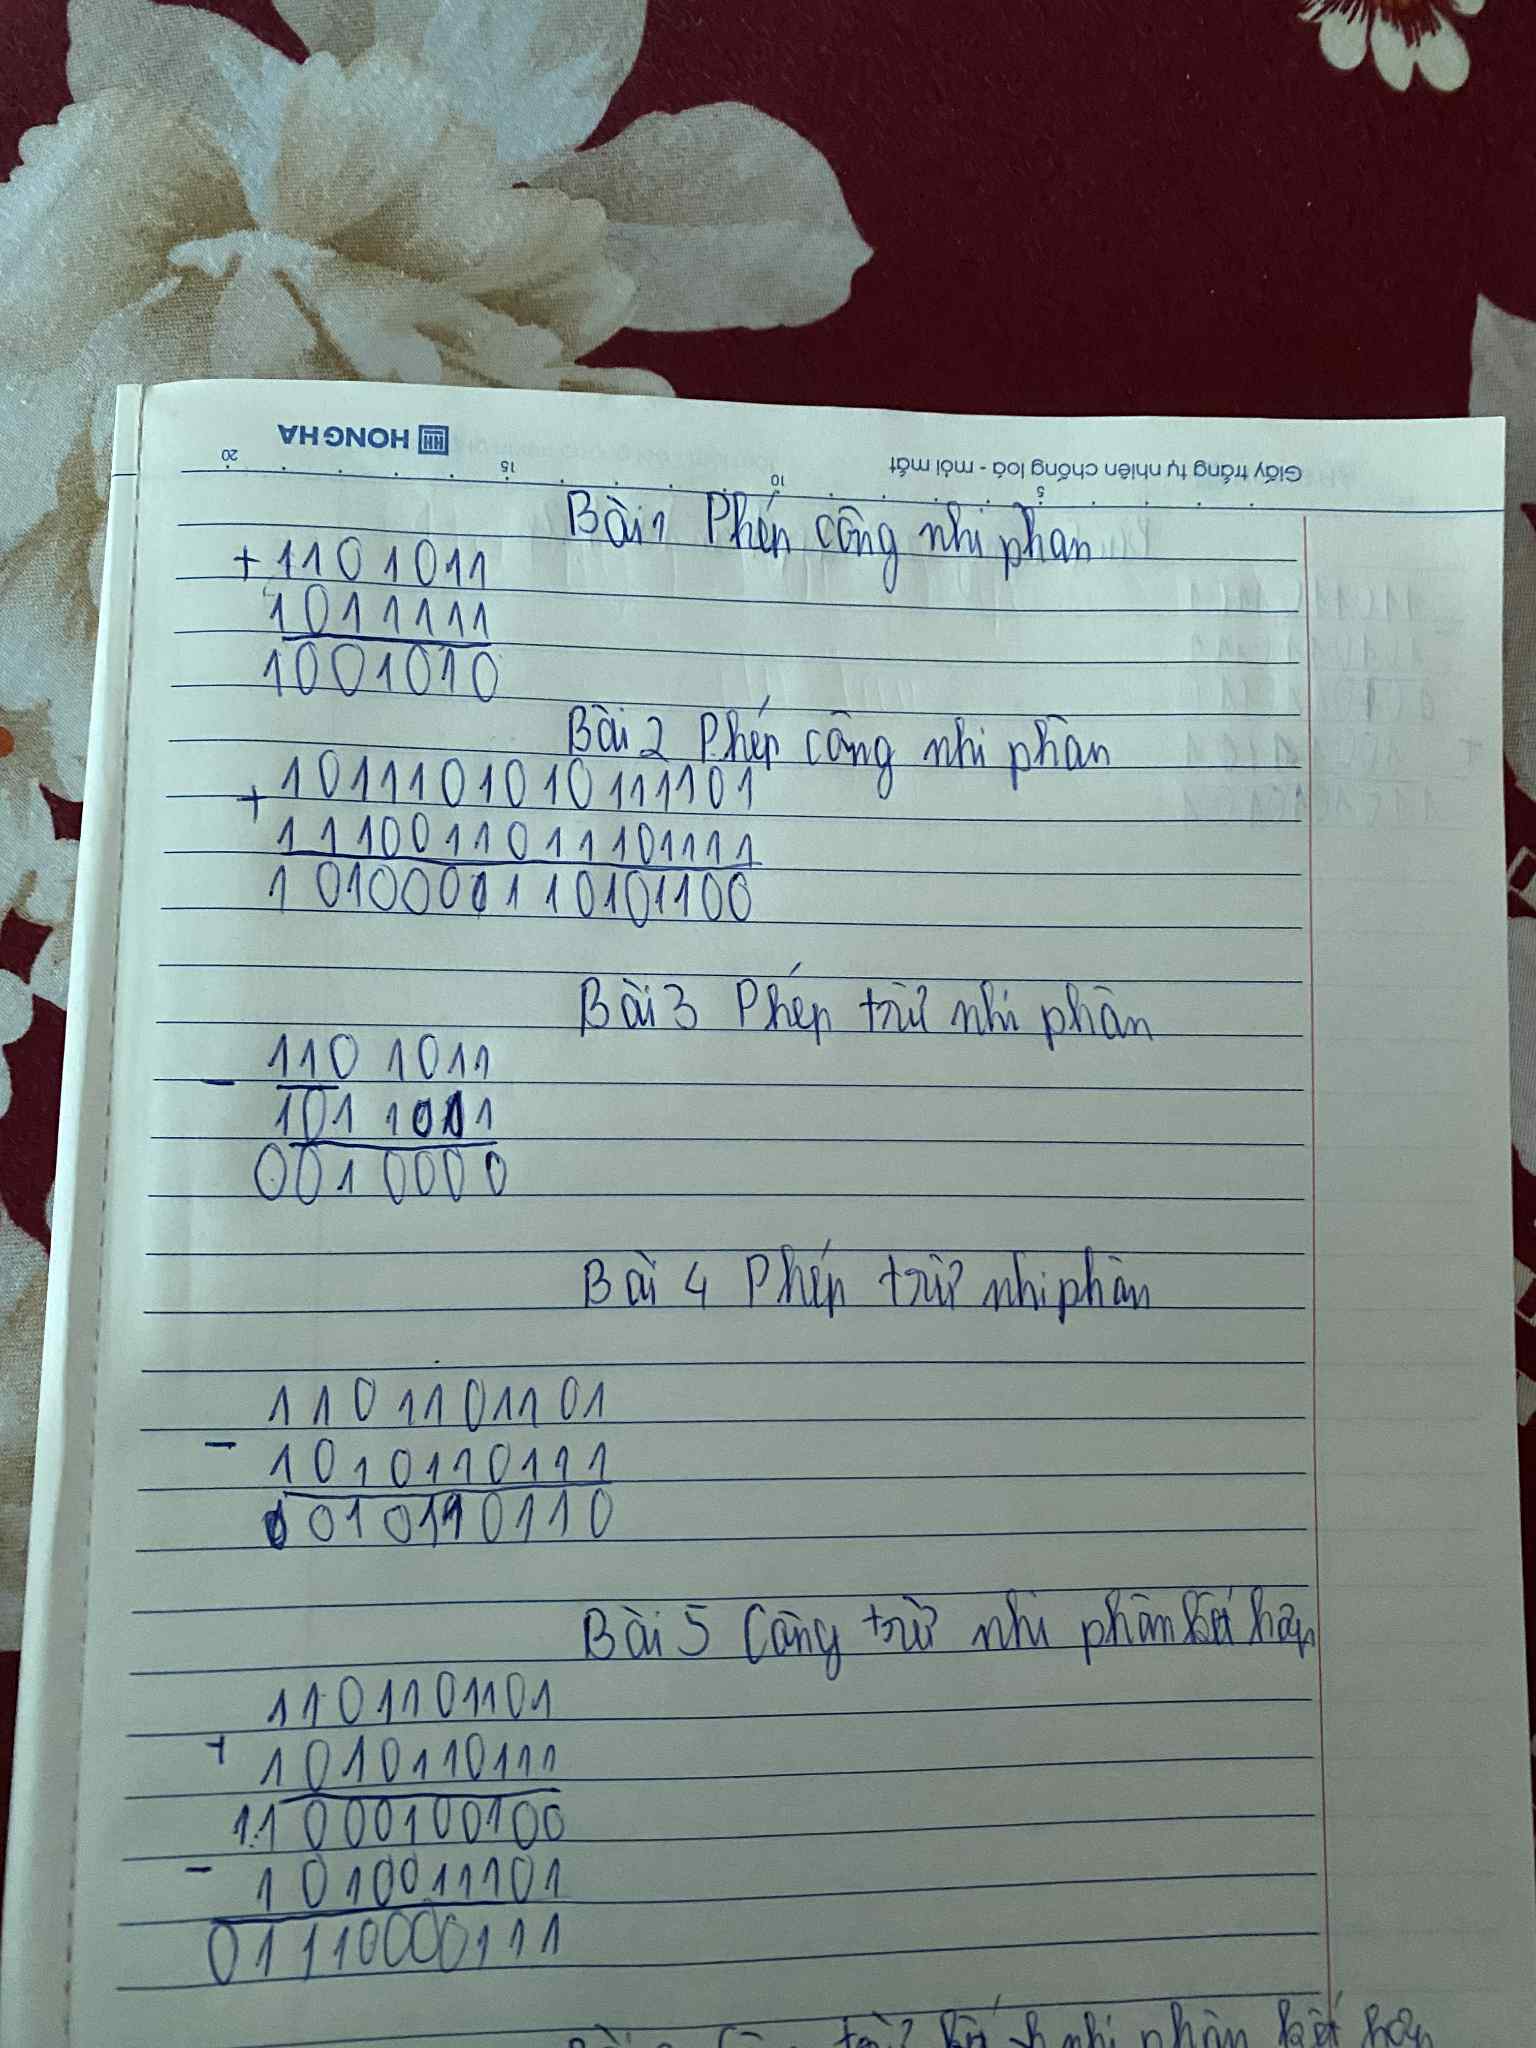 HONG HA
Giấy trắng tự nhiên chống loá - mỏi mắt
20 15 10 5
Bài 1 Phép công nhi phan
+ 1101011
1011111
1001010
Bài 2 Phép công nhi phân
1011101010111101
+
1110011011101111
1010000110101100
Bài 3 Phép trừ nhi phân
1101011
-
1011011
0010000
Bài 4 Phép trừ nhi phân
1101101101
-
1010110111
0010110110
Bài 5 Công trừ nhi phân kết hợp
1101101101
+
1010110111
11000100100
-
1010011101
01110000111